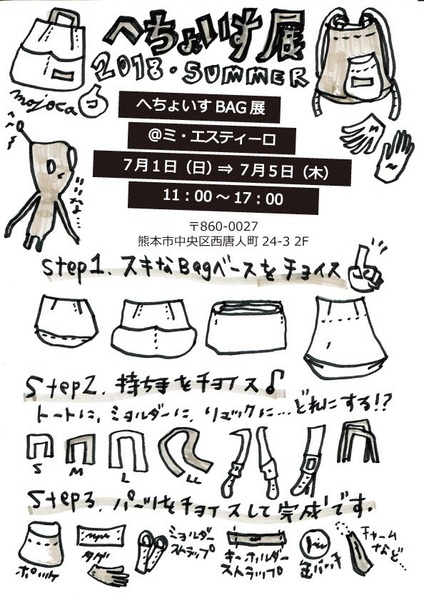 へちょいす展
2018・SUMMER
mojoca
へちょいす BAG 展
@ミ・エスティーロ
7月1日(日)⇒ 7月5日(木)
11:00~17:00
〒860-0027
熊本市中央区西唐人町 24-3 2F
step1. スキなBagベースをチョイス
Step2. 持ち手をチョイス♪
トートに、ショルダーに、リュックに…どれにする!?
S M L LL
Step3. パーツをチョイスして完成です。
ポッケ
タグ
ショルダーストラップ
キーホルダーストラップ
缶バッチ
チャームなど…